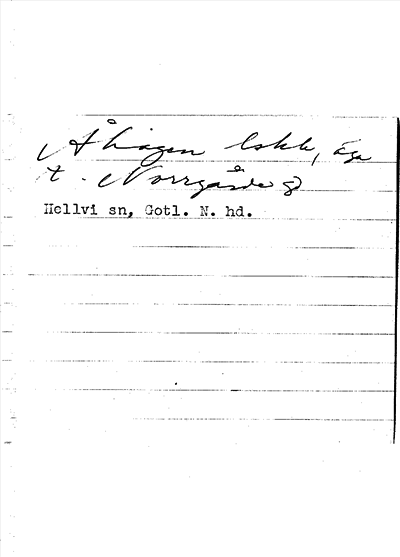 Åhagen lskh, äga
t. Norrgårde 8
Hellvi sn, Gotl. N. hd.